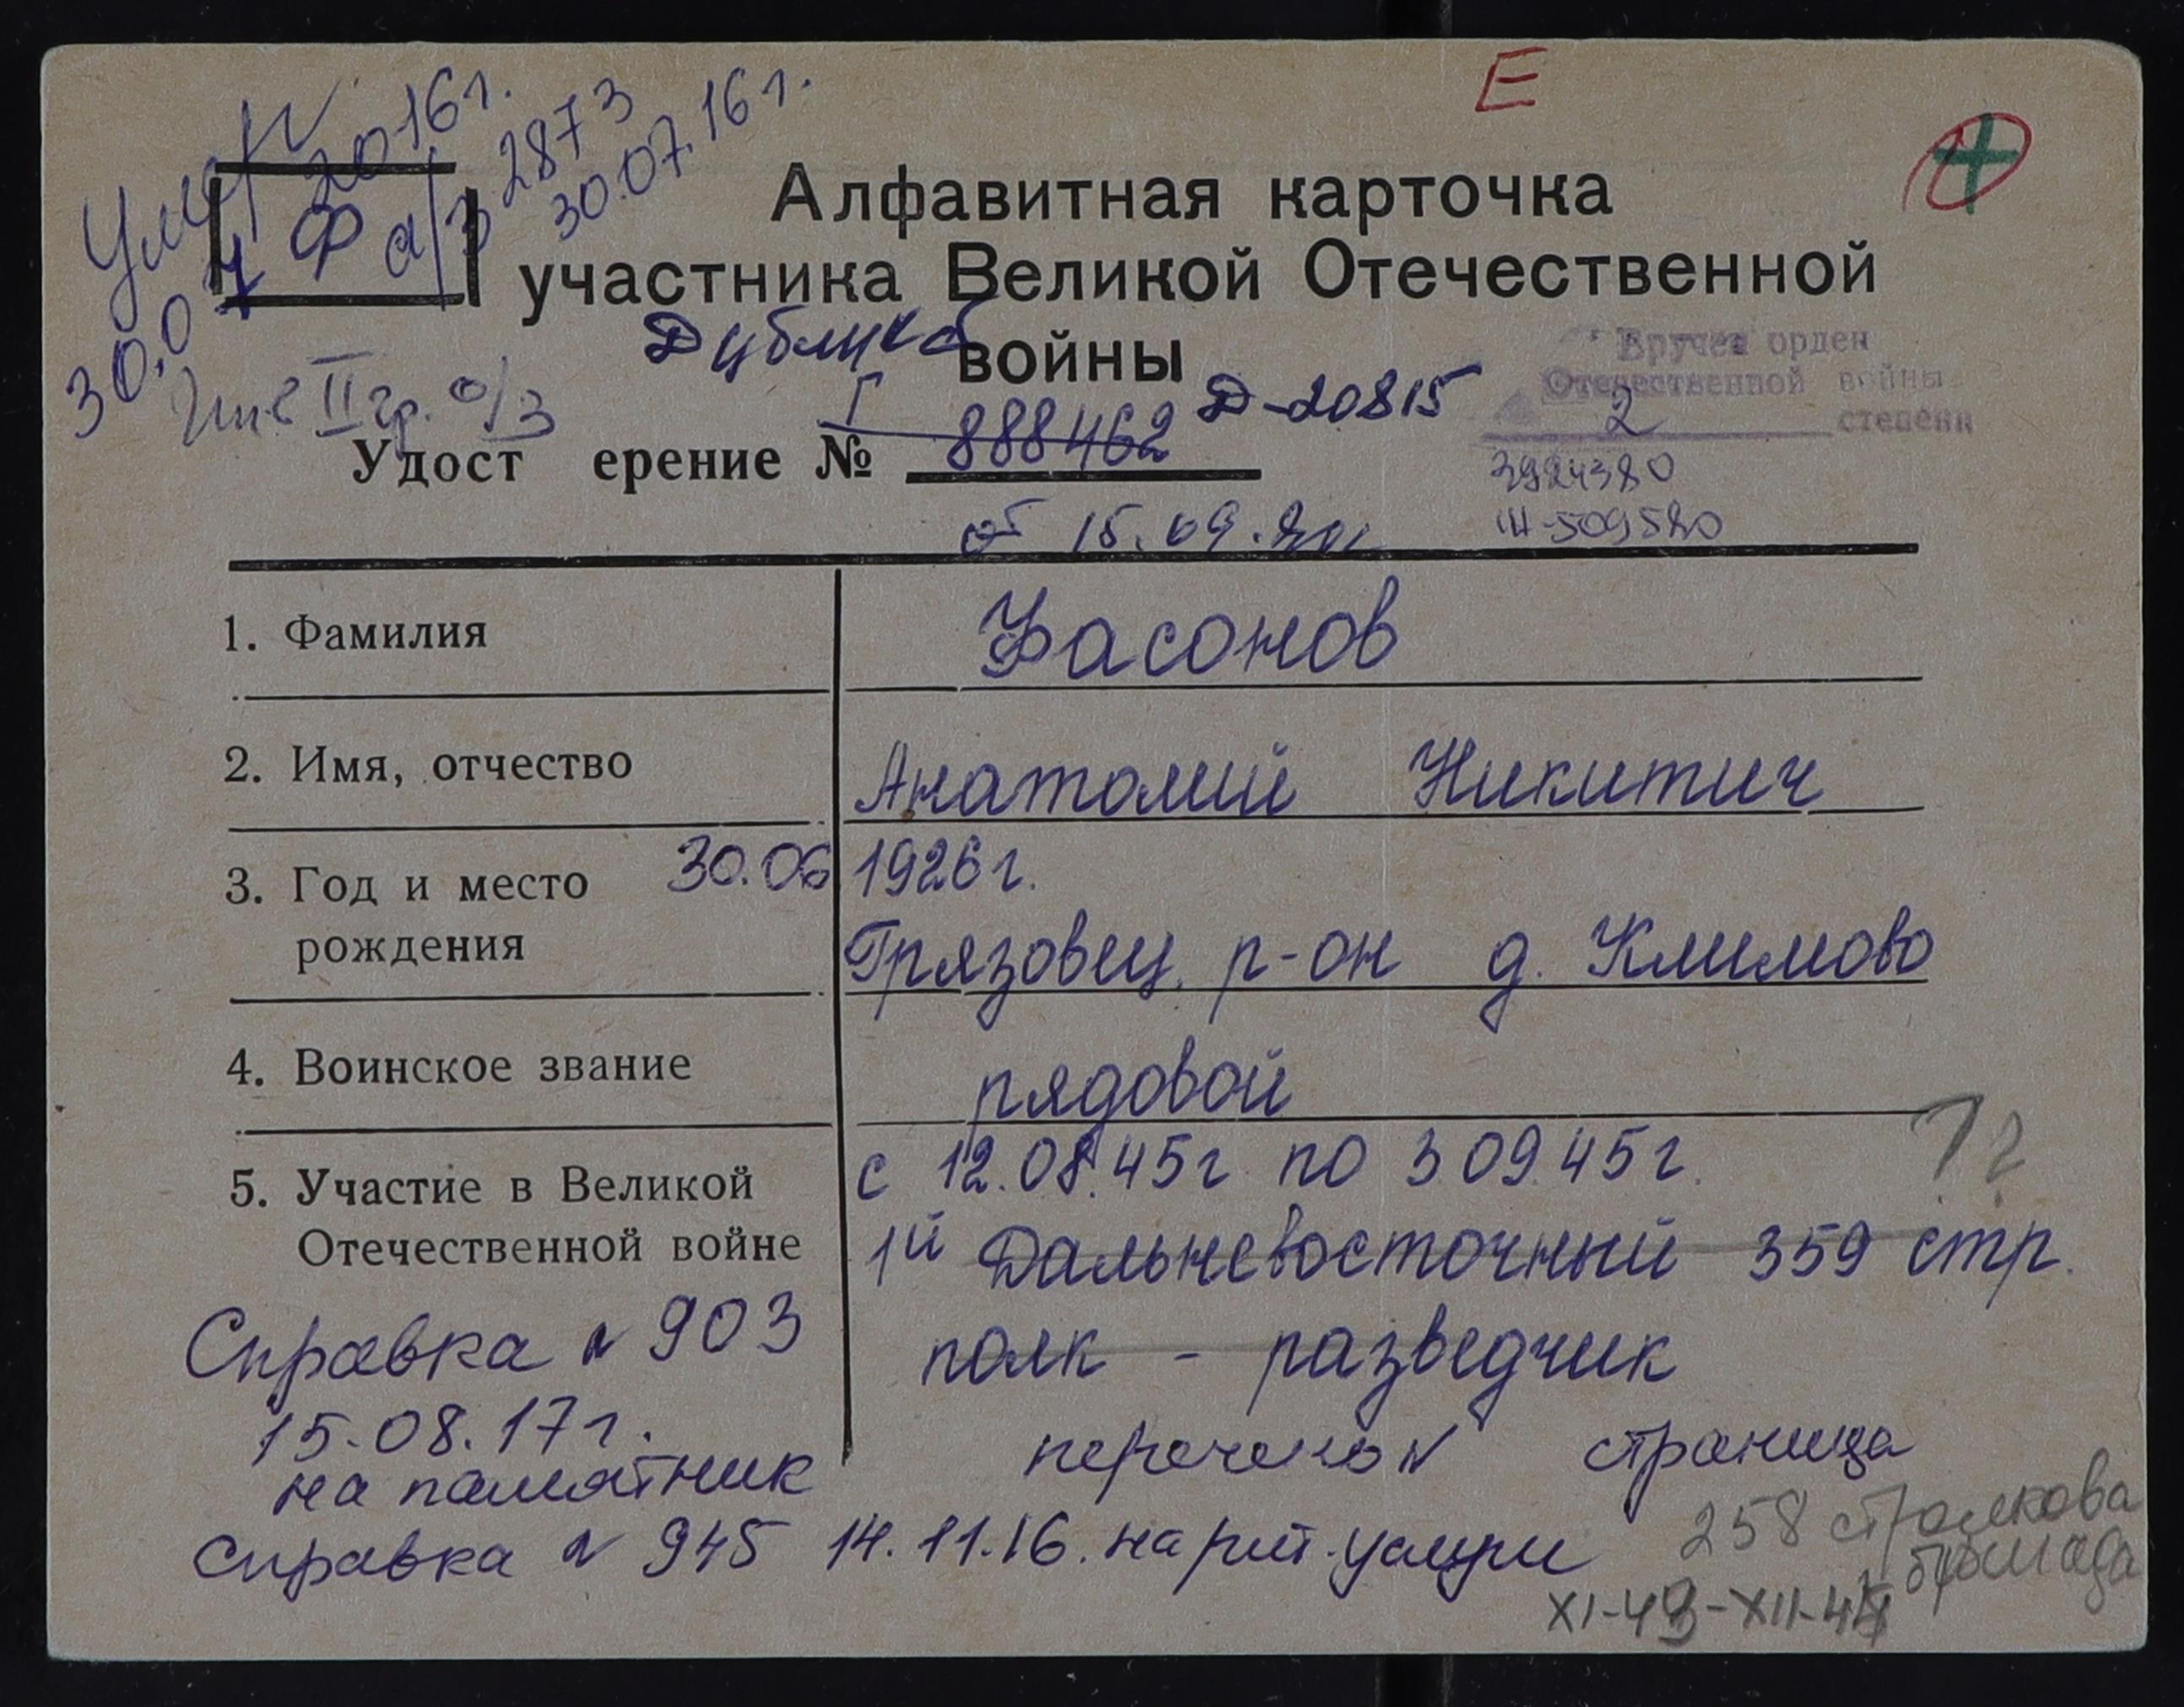 Е
Умер
30.07 2016 г.
Ф
а/з 2873
30.07.16 г.
Алфавитная карточка
участника Великой Отечественной
войны
Дубликат
Д-20815
Инв II гр. о/з
Удост ерение № I 888462
от 15.09.
Вручен орден
Отечественной войны
2 степени
3924380
509580
1. Фамилия Фасонов
2. Имя, отчество Анатолий Никитич
3. Год и место рождения 30.06 1926 г.
Грязовец. р-он д. Климово
4. Воинское звание рядовой
5. Участие в Великой Отечественной войне с 12.08.45 г по 3 09.45 г.
1й Дальневосточный 359 стр.
полк - разведчик
Справка № 903
15.08.17 г.
на памятник
страница
Справка № 945 14.11.16. на рит. услуги
258 стрелкова
бригада
XI-43-XII-44